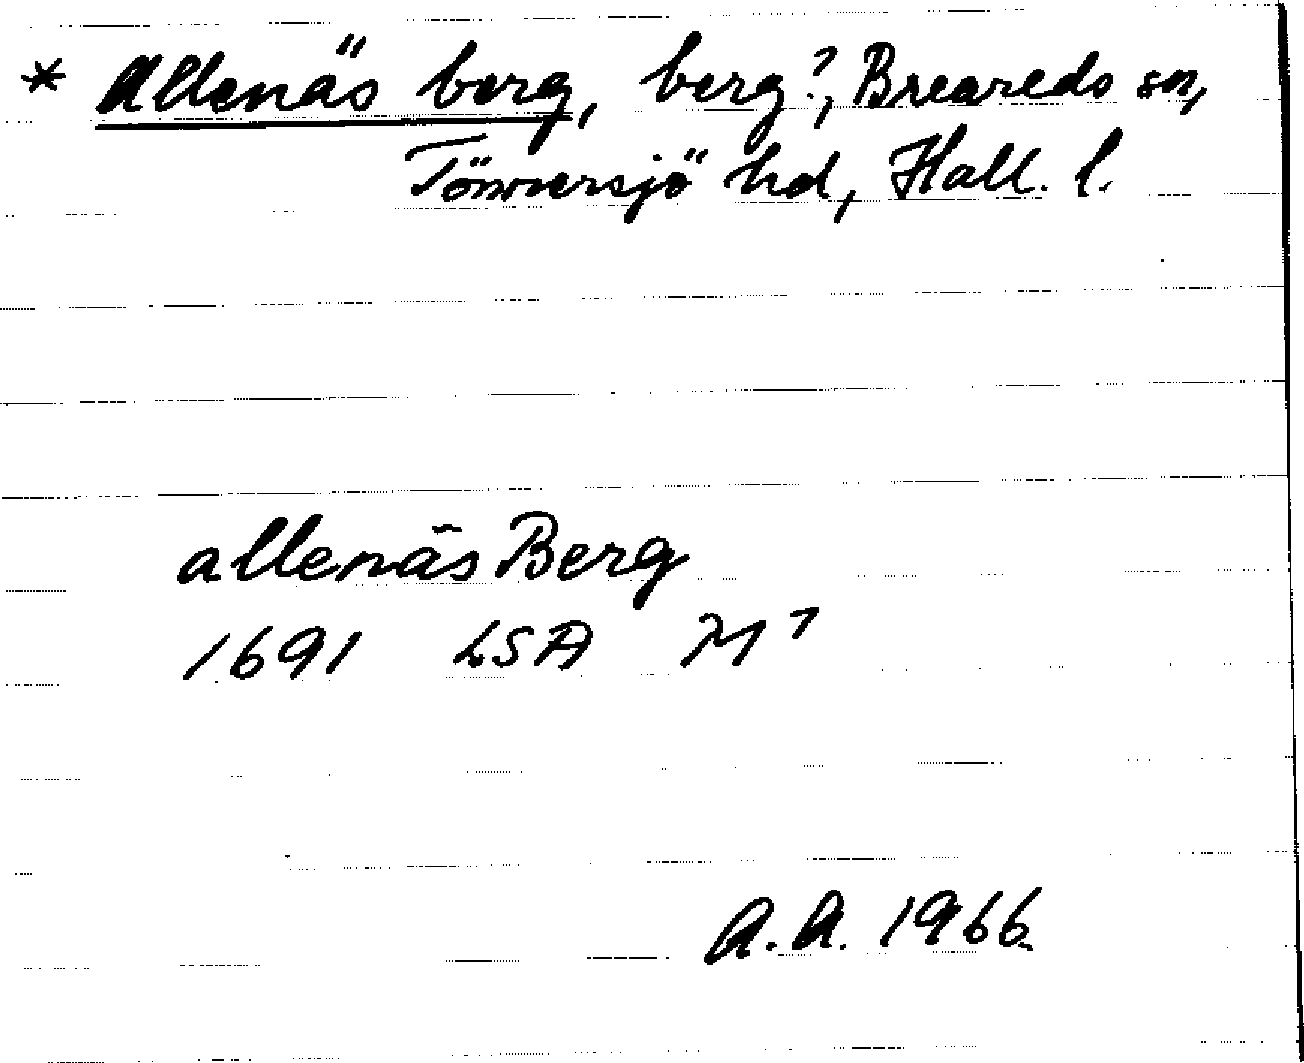 * Allenäs berg, berg?, Breareds sn,
Tönnersjö hd, Hall. l.
allenäs Berg
1691 LSA M⁷
A.A. 1966